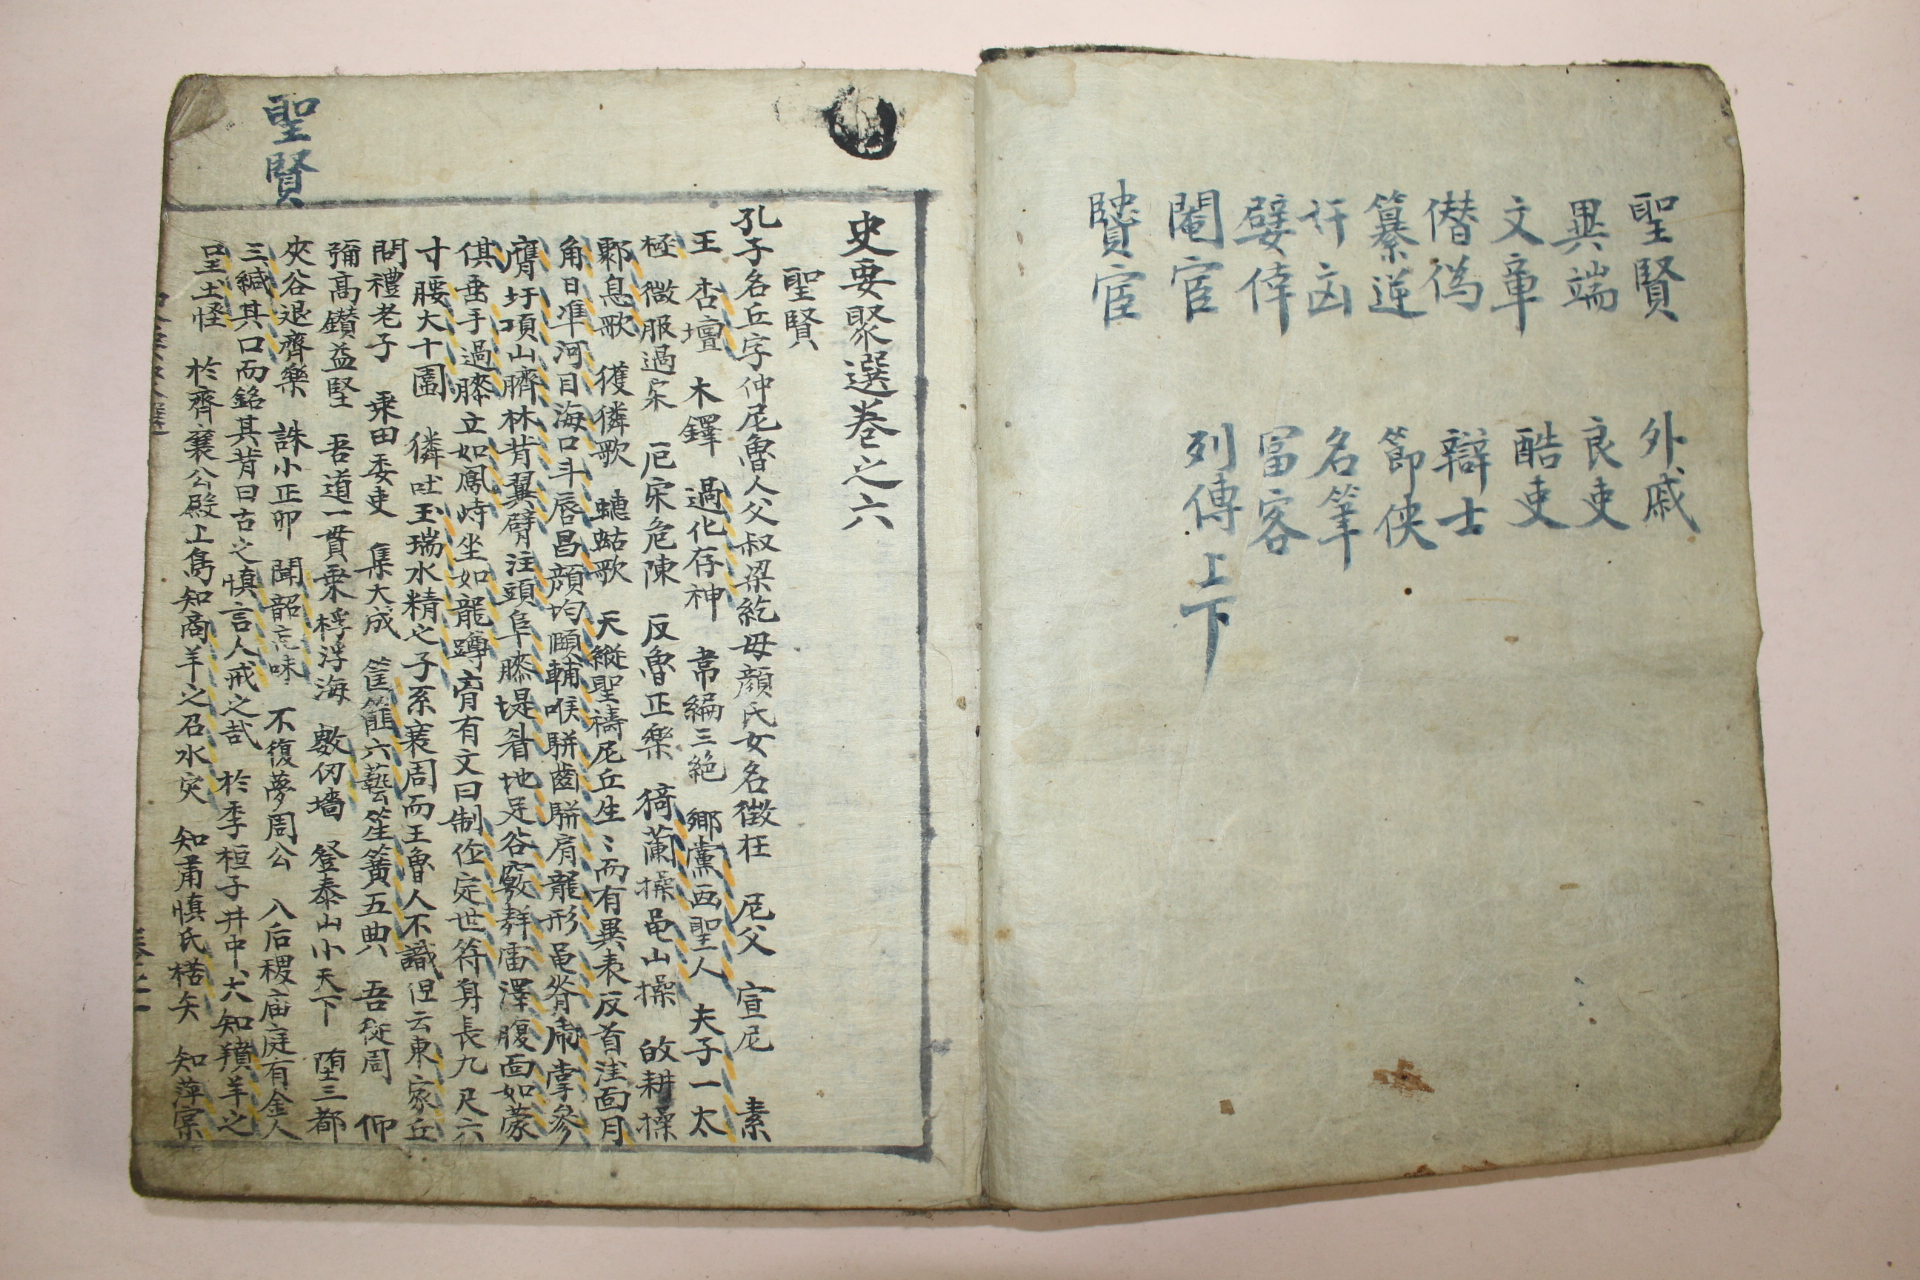 聖賢
異端
文章
僭偽
篡逆
奸凶
嬖倖
閹宦
賢宦
外戚
良吏
酷吏
辯士
節俠
名筆
富客
列傳上下
聖賢
史要聚選卷之六
聖賢
孔子名丘字仲尼魯人父叔梁紇母顔氏女名徵在 尼父 宣尼 素
王 杏壇 木鐸 過化存神 韋編三絶 鄉黨西聖人 夫子一太
極 微服過宋 厄宋危陳 反魯正樂 猗蘭操 龜山操 攸耕操
鄹息歌 獲獜歌 蟪蛄歌 天縱聖禱尼丘生〻而有異表反首洼面月
角日凖河目海口斗唇昌顔均頤輔喉騈齒騈肩龍形龜脊虎掌參
膺圩項山臍林背翼臂注頭阜膝堤眉地足谷竅雷澤腹面如蒙
倛垂手過膝立如鳳峙坐如龍蹲有文曰制作定世符身長九尺六
寸腰大十圍 獜吐玉瑞水精之子系衰周而王魯人不識但云東家丘
問禮老子 乗田委吏 集大成 筐篚六藝笙簧五典 吾從周 仰
彌高鑽益堅 吾道一貫乗桴浮海 數仞墻 登泰山小天下 堕三都
夾谷退齊樂 誅小正卯 聞韶忘味 不復夢周公 入后稷庙庭有金人
三緘其口而銘其背曰古之愼言人戒之㢤 於季桓子井中犬知羵羊之
呈土怪 於齊襄公殿上鳥知商羊之召水灾 知肅愼氏楛矢 知萍宲